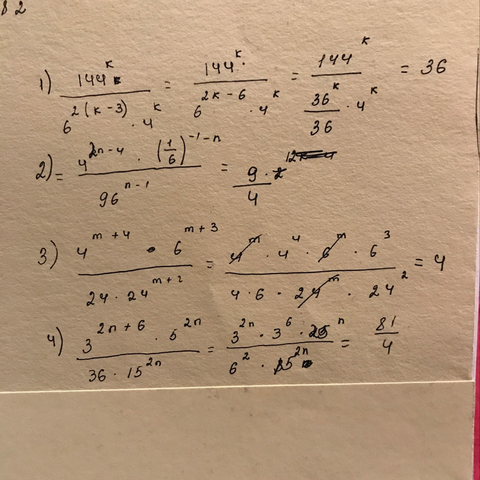 82
1) 144^k / (6^{2(k-3)} · 4^k) = 144^k / (6^{2k-6} · 4^k) = 144^k / ((36^k / 36) · 4^k) = 36
2) = (4^{2n-4} · (1/6)^{-1-n}) / 96^{n-1} = 9 · 2 / 4
3) (4^{m+4} · 6^{m+3}) / (24 · 24^{m+2}) = (4^m · 4^4 · 6^m · 6^3) / (4 · 6 · 24^m · 24^2) = 4
4) (3^{2n+6} · 5^{2n}) / (36 · 15^{2n}) = (3^{2n} · 3^6 · 25^n) / (6^2 · 15^{2n}) = 81 / 4